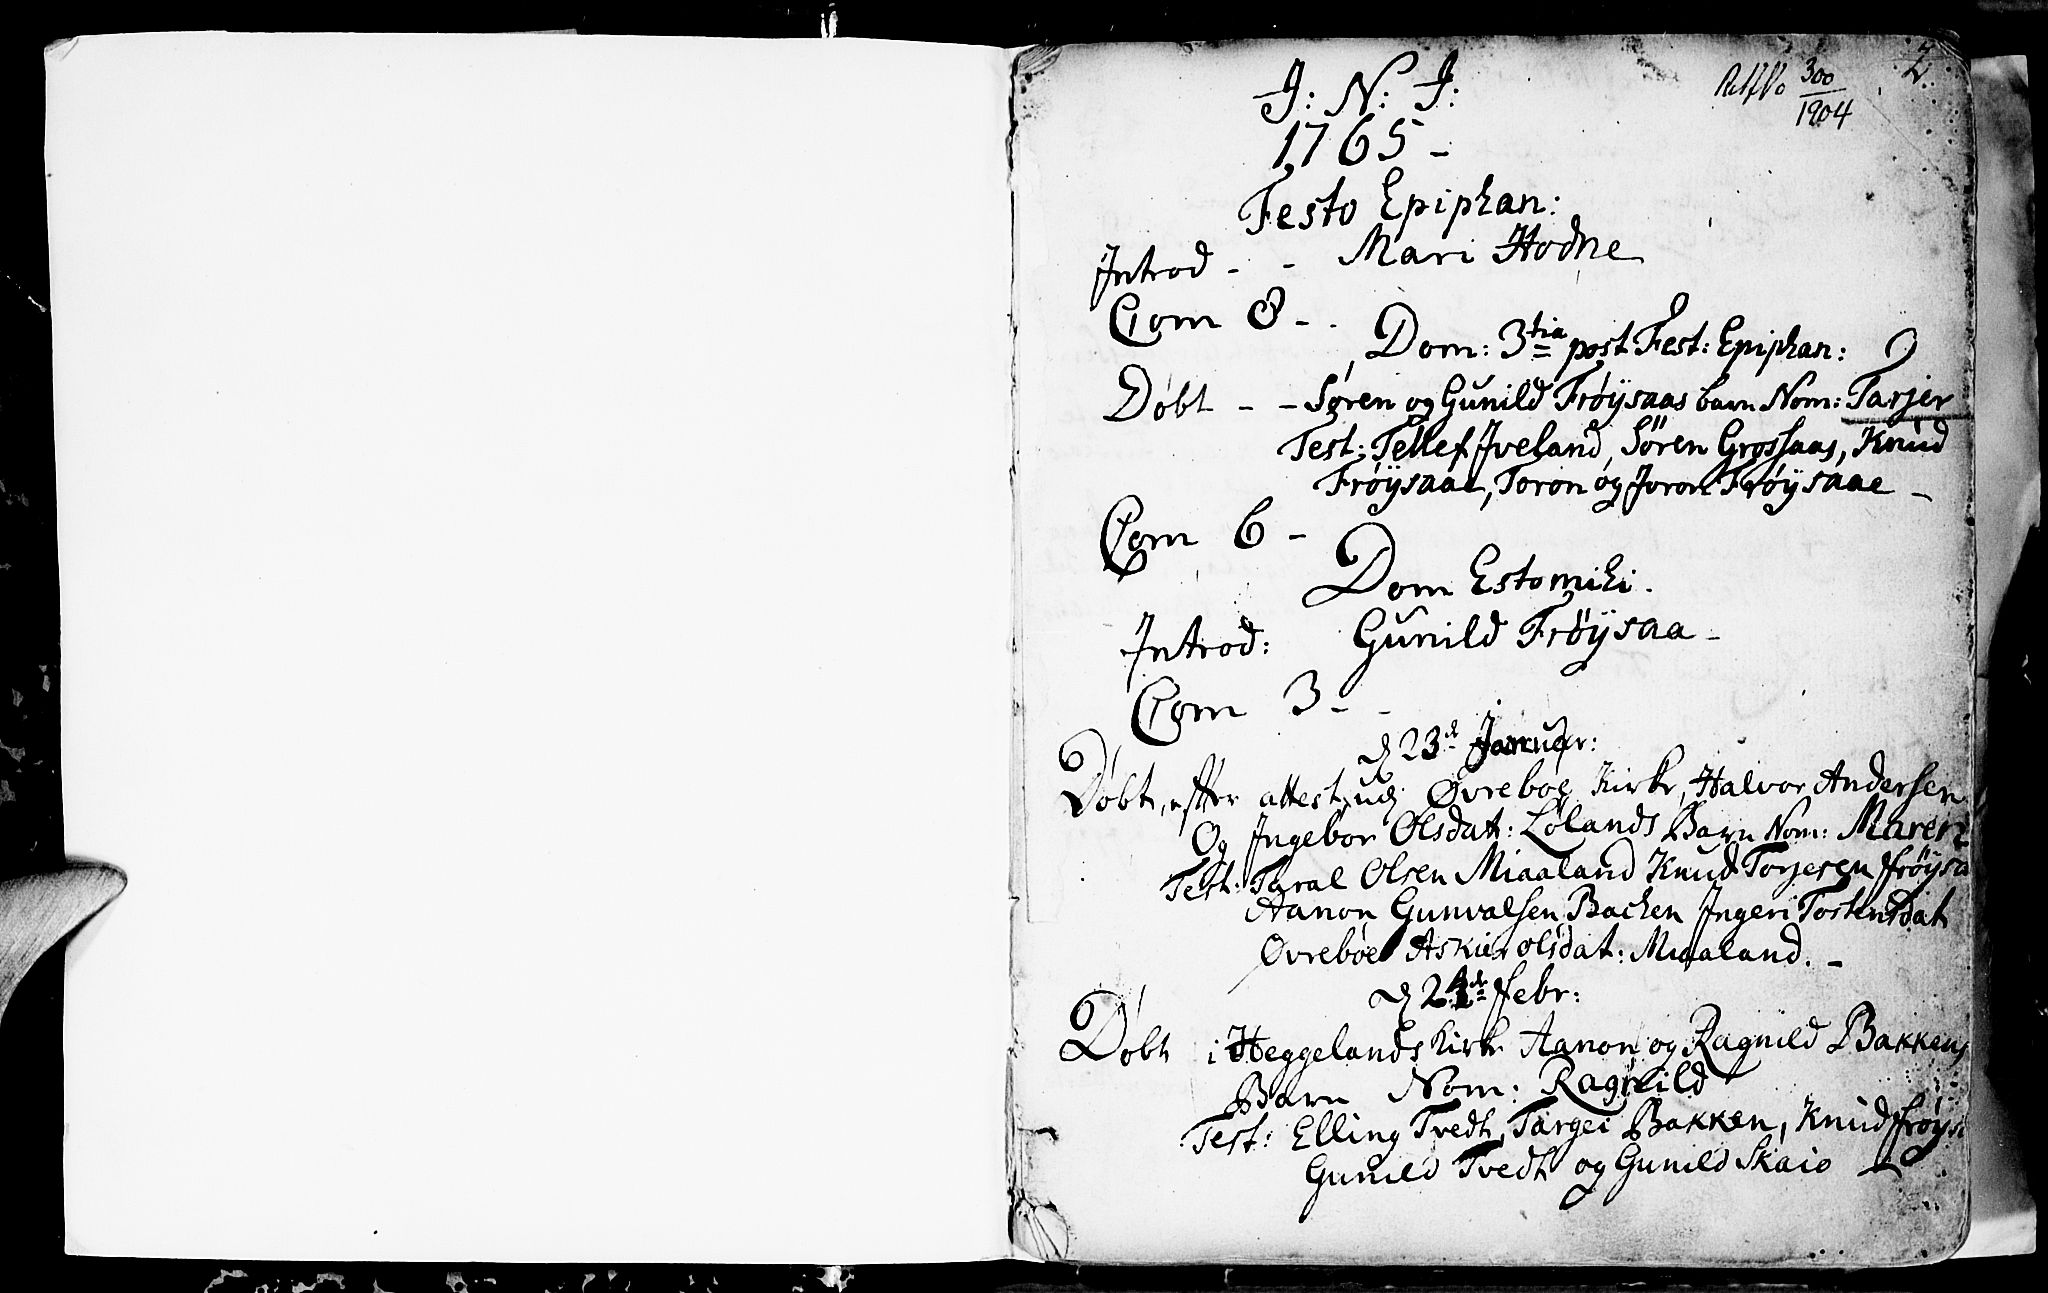 J: N: J:
300
1904
2
1765 -
Festo Epiphan:
Introd - - Mari Hodne
Com 8 - -
Dom: 3tia post Fest: Epiphan:
Døbt - - Søren og Gunild Frøÿsaas barn Nom: Tarjer
Test: Tellef Iveland, Søren Grossaas, Knud
Frøÿsaae, Toron og Joron Frøÿsaae -
Com 6 -
Dom Estomihi.
Introd: Gunild Frøÿsaa -
Com 3 - -
d 23de Januar:
Døbt, efter attest, udj Øvreboe Kirke, Halvor Andersen
Og Ingebor Olsdat: Lølands Barn Nom: Maren
Test: Taral Olsen Miaaland Knud Torjesen frøÿsa
Aanon Gunvalsen Bachen Ingeri Tostensdat
Øvreboe Askier olsdat: Miaaland. -
d febr:
Døbt i Heggelands Kirke Aanon og Ragnild Bakkens
Barn Nom: Ragnild
Test: Elling Tvedt, Targei Bakken, Knud frøÿs
Gunild Tvedt og Gunild Skaio -